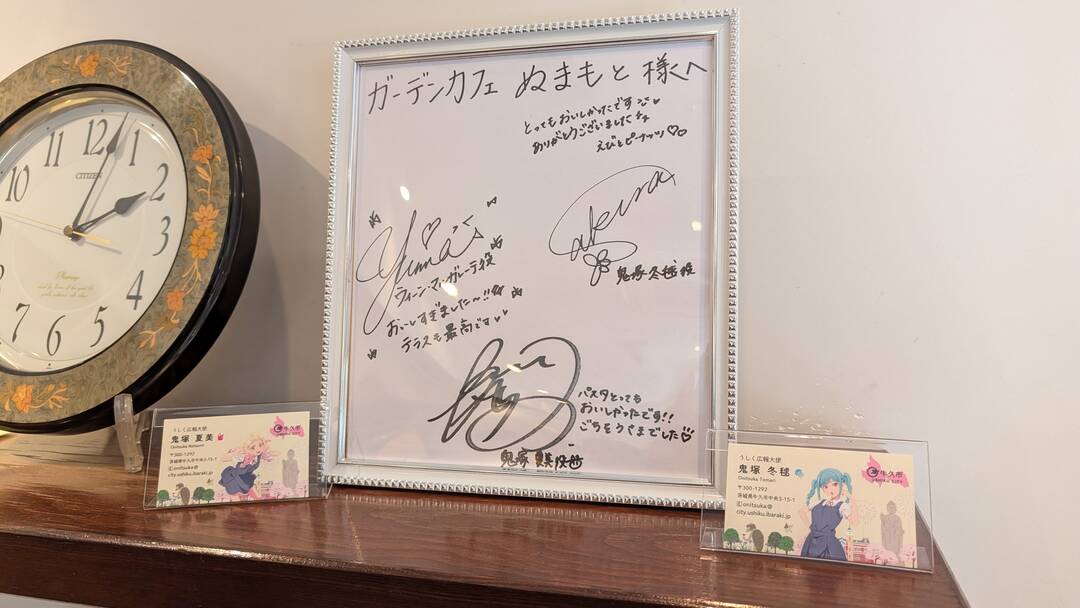 12
1
2
3
4
5
6
7
10
11
CITIZEN
ガーデンカフェ ぬまもと 様へ
とってもおいしかったです
ありがとうございました
えびとピーナッツ♡
鬼塚冬毬役
Yuina
ウィーン・マルガレーテ役
おいしすぎました〜!!
テラスも最高です
パスタとっても
おいしかったです!!
ごちそうさまでした♡
鬼塚 夏美役
うしく広報大使
鬼塚 夏美
Onitsuka Natsumi
〒300-1292
茨城県牛久市中央3-15-1
onitsuka@
city.ushiku.ibaraki.jp
牛久市
うしく広報大使
鬼塚 冬毬
Onitsuka Tomari
〒300-1292
茨城県牛久市中央3-15-1
onitsuka@
city.ushiku.ibaraki.jp
牛久市
USHIKU CITY